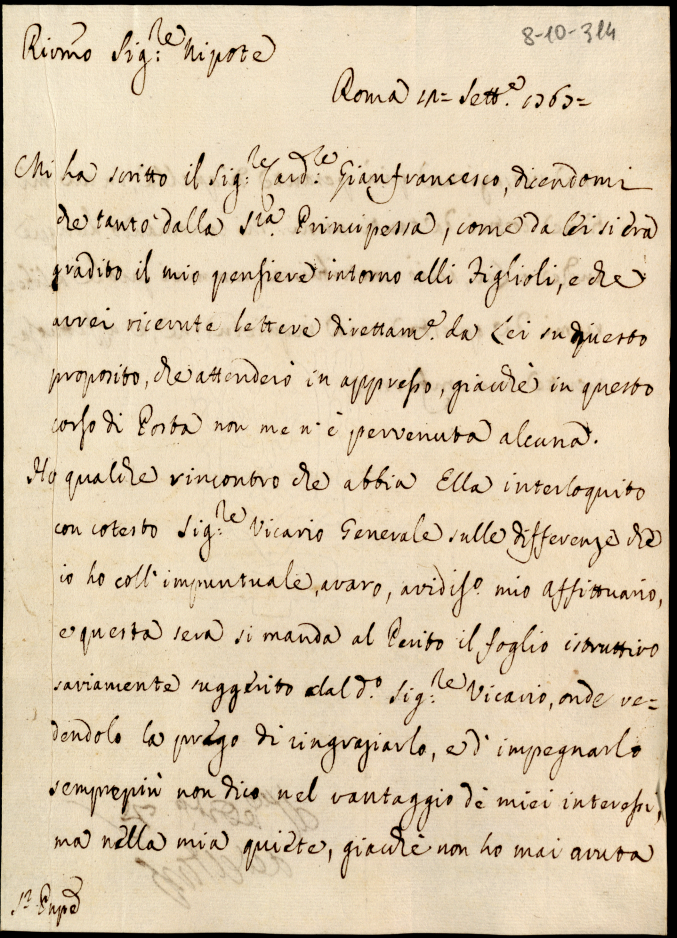 8-10-314
Sig:re Nipote
Roma Sett.e 1767=
Mi ha scritto il Sig:re Card:le Gianfrancesco, dicendomi
che tanto dalla Sra. Principessa, come da Lei si era
gradito il mio pensiere intorno alli Figlioli, e che
avrei ricevute lettere direttam.e da Lei su questo
proposito, che attenderò in appresso, giacchè in questo
corso di Posta non me n'è pervenuta alcuna.
Ho qualche rincontro che abbia Ella interloquito
con cotesto Sig:re Vicario Generale sulle differenze che
io ho coll'impuntuale, avaro, avidiss.o mio Affittuario,
e questa sera si manda al Perito il foglio istruttivo
saviamente suggerito dal d.o Sig:re Vicario, onde ve=
dendolo la prego di ringraziarlo, e d'impegnarlo
semprepiù non dico nel vantaggio de miei interessi,
ma nella mia quiete, giacchè non ho mai avuta